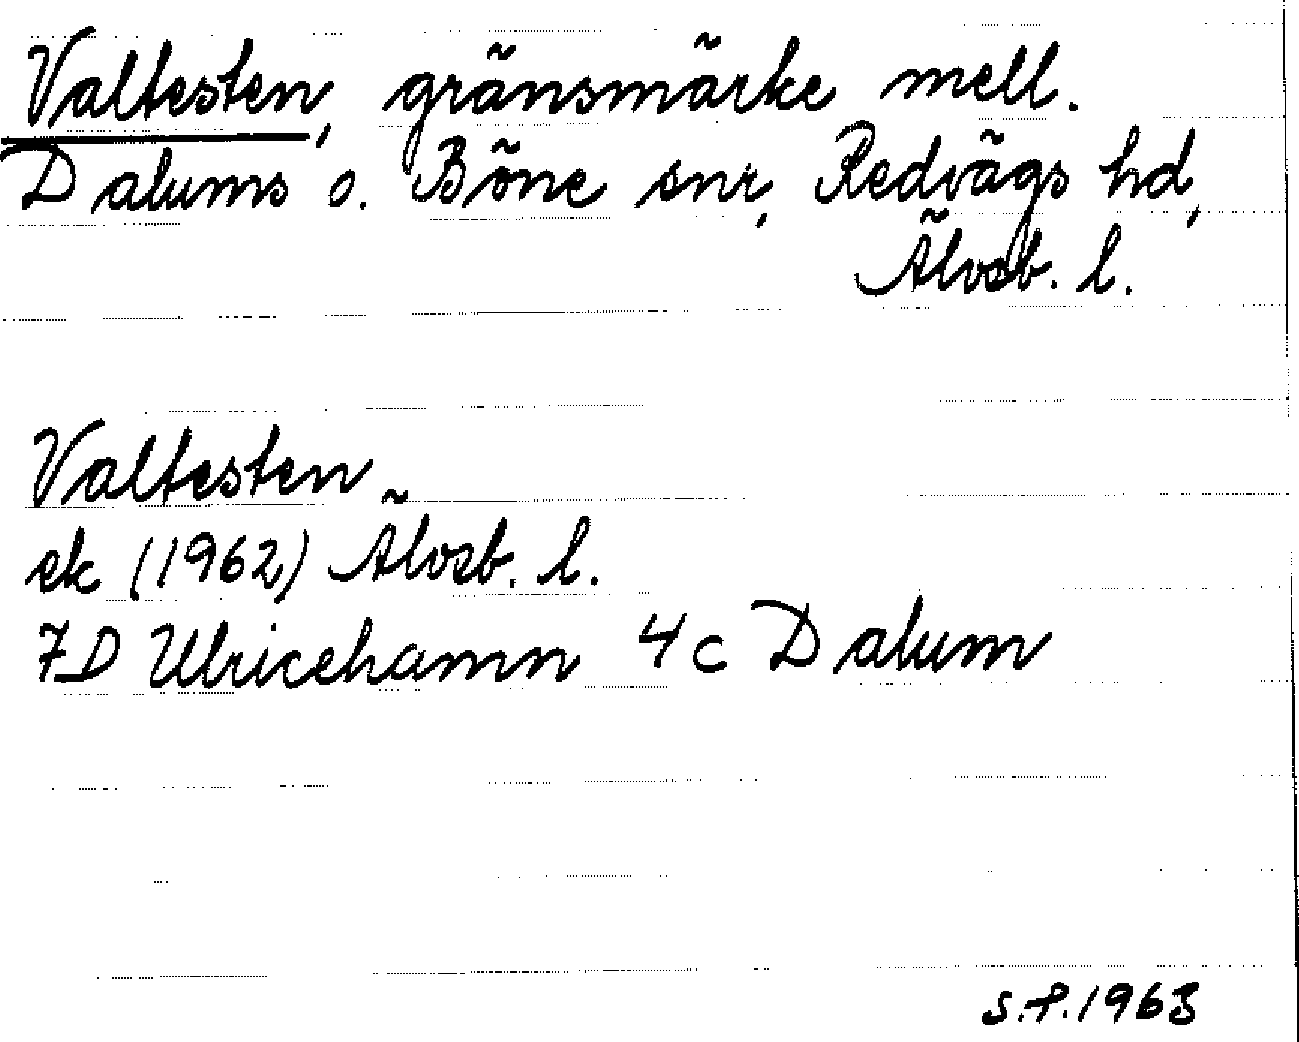 Valtesten, gränsmärke mell.
Dalums o. Böne snr, Redvägs hd,
Älvsb. l.
Valtesten
ek (1962) Älvsb. l.
7D Ulricehamn 4c Dalum
S.P. 1963